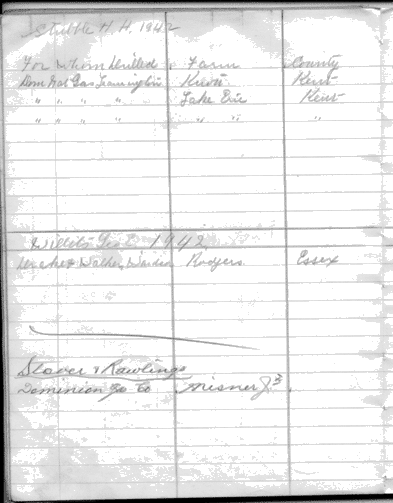 Stubble H. H. 1942
For Whom Drilled Farm County
Dom Nat Gas Leamington Kent
" " " " Lake Erie Kent
" " " " " " "
Willits 1942
& Walker, Rodgers Essex
Stover & Rawlings
Dominion Co Misner 3